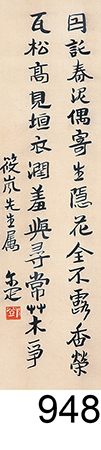 因託春泥偶寄生隱花全不露香榮
瓦松高見垣衣潤羞與尋常艸木爭
筱嵐先生屬
948